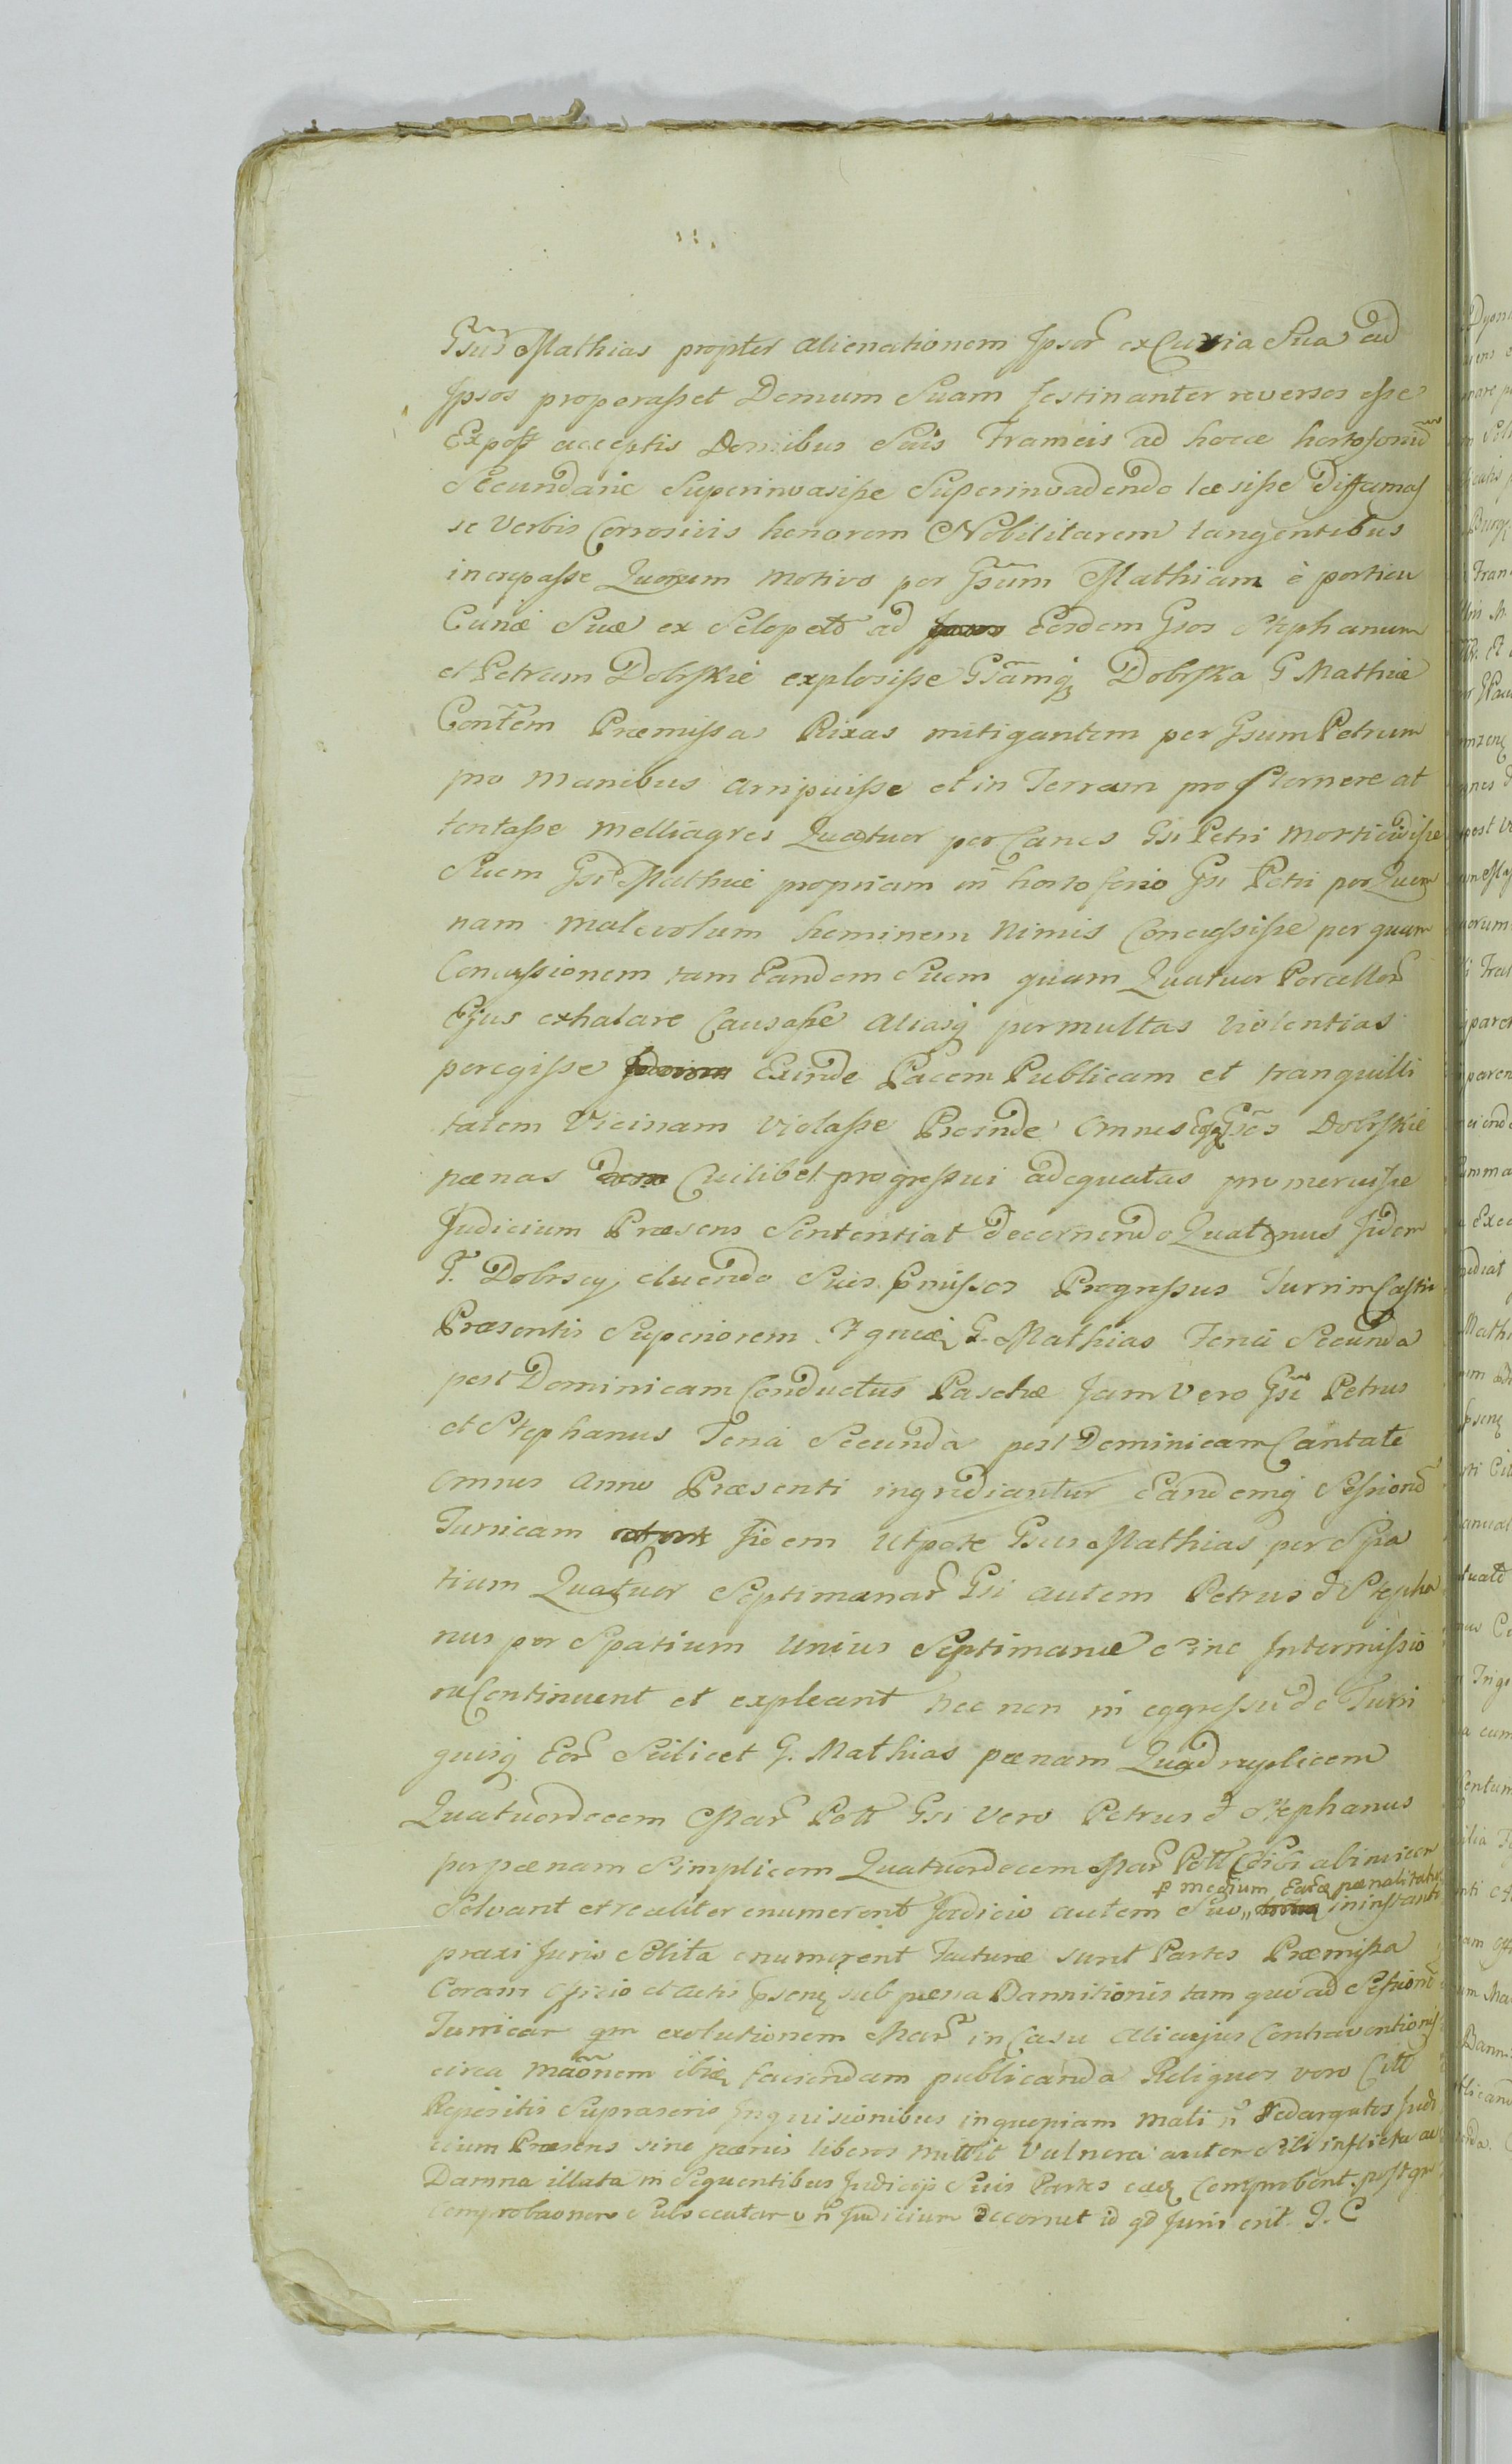 Gsus Mathias propter alienationem Ipsor ex Curia Sua ad
Ipsos properasset Domum Suam festinanter reversos esse
Expost acceptis Domibus Suis Frameis ad hocce
Secundarie Superinvasisse Superinvadendo læsisse Diffamas
se Verbis Corrosivis honorem Nobilitarem tangentibus
increpasse Quorum motivo per Gsum Mathiam è porticu
Curiæ Suæ ex Sclopeto ad Eosdem Gsos Stephanum
et Petrum Dobrskie explosisse Gsamq Dobrska G Mathiæ
Contem Præmissas Rixas mitigantem per Gsum Petrum
pro manibus arripuisse et in Terram prosternere at
tentasse Melliagres Quatuor per Canes Gsi Petri
Suem Gsi Mathiæ propriam in horto ferio Gsi Petri per Quem
nam malevolum hominem nimis Concussisse per quam
Concussionem tam Eandem Suem quam Quatuor Porcellor
Ejus exhalare Causasse aliasq permultas violentias
peregisse Exinde Pacem Publicam et tranquilli
tatem Vicinam violasse Proinde Omnes Gsos Dobrskie
pœnas Cuilibet progressui adæquatas promeruisse
Judicium Præsens Sententiat decernendo Quatenus Iidem
G. Dobrscy, eluendo Suis pmissos Progressus Turrim Castri
Præsentis Superiorem G. Mathias Feria Secunda
post Dominicam Conductus Paschæ Jam Vero Gsi Petrus
et Stephanus Feria Secunda post Dominicam Cantate
omnes anno Præsenti ingrediantur Eandemq Sessione
Turricam Iidem Utpote Gsus Mathias per Spa
tium Quatuor Septimanar Gsi autem Petrus & Stepha
nus per Spatium unius Septimanæ Sine Intermissio
ne Continuent et expleant nec non in eggressu de Turri
quisq Eor Scilicet G. Mathias pœnam Quadruplicem
Quatuordecem Mar Poll Gsi Vero Petrus & Stephanus
per pœnam Simplicem Quatuordecem Mar Poll Sibi abinvicem
p medium Earq pœnalitatu
Solvant et realiter enumerent Judicio autem Suo,, in instanti
praxi Juris Solita enumerent Facturæ sunt Partes Præmissa
Coram Officio et actis psenq sub pœna Bannitionis tam quoad Sessione
Turricar qm exolutionem Mar in Casu alicujus Contraventionis
circa maonem ibiq faciendam publicanda Reliquos vero Citt
Repertis Suprascris Inquisionibus in quopiam mali n redargutos Judi
cium Præsens sine pœnis liberos mittit Vulnera autem Sibi inflicta ac
Damna illata in Sequentibus Judicijs Suis Partes eædq Comprobent. post qm
Comprobaonem Subsecutar Judicium decernet id qd Juris erit. J. C